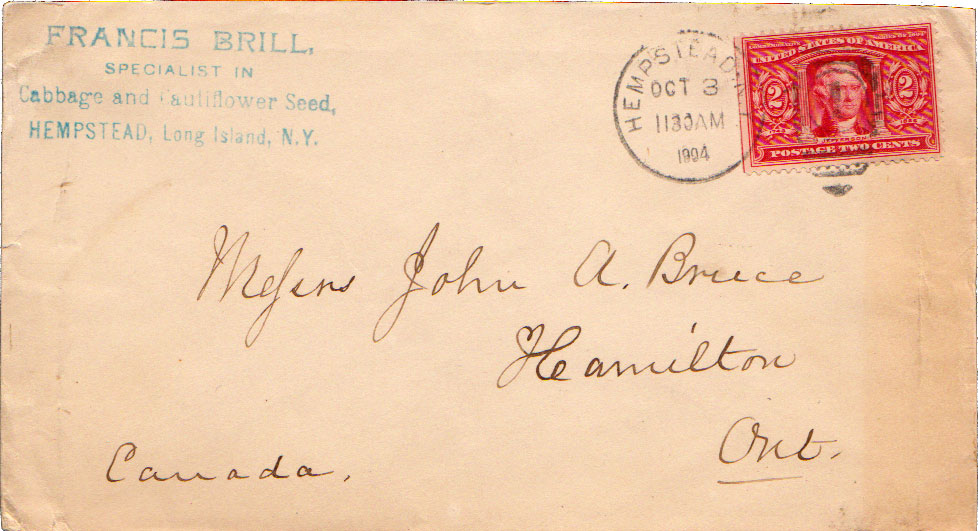 FRANCIS BRILL,
SPECIALIST IN
Cabbage and Cauliflower Seed,
HEMPSTEAD, Long Island, N.Y.
HEMPSTEAD, N.Y.
OCT 3
1130AM
1904
UNITED STATES OF AMERICA
2 2
JEFFERSON
POSTAGE TWO CENTS
Messrs John A. Bruce
Hamilton
Ont.
Canada.